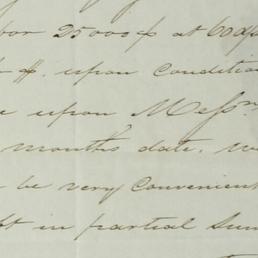 for 25000 $ at 60 d/s
upon Condition
upon Messrs
months date, w
be very Convenient
in partial Sum